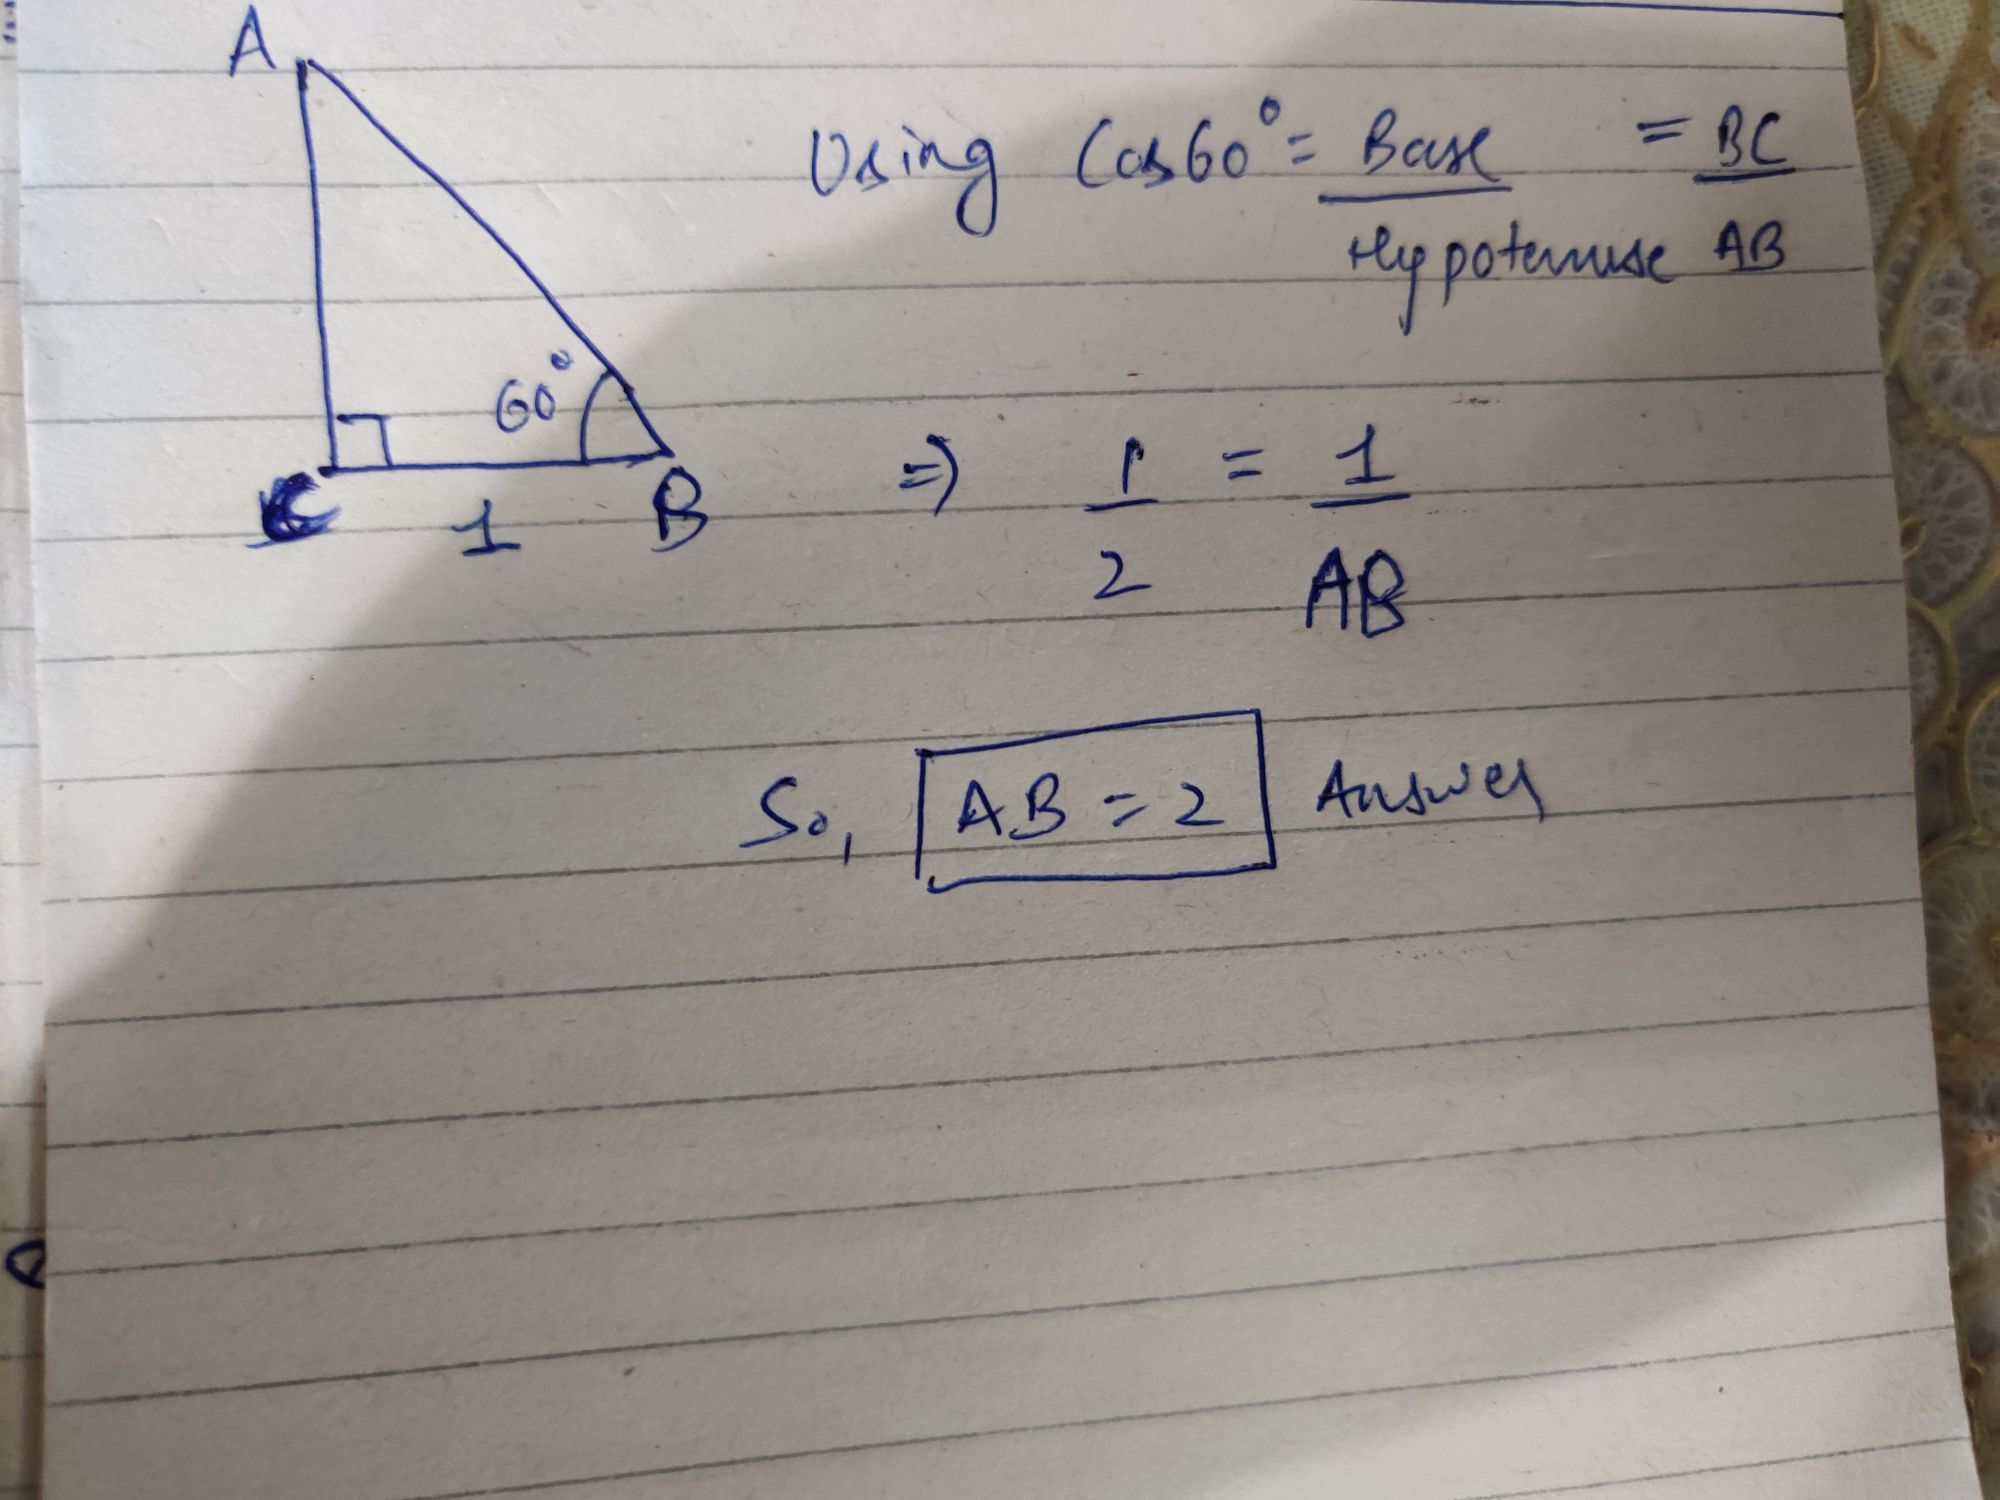 A
60°
C
1
B
Using Cos60° = Base = BC
Hypotenuse AB
=> 1 = 1
2 AB
So, AB = 2 Answer